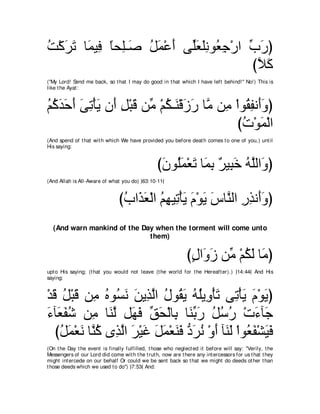 ﺗُﺮَﻛْﺖُ ﻓِﻴﻤَﺎ ﺻَـﻠِﺤﺎً ﺃَﻋْﻤَﻞُ ﻟَﻌَﻠِّﻰ ﺍﺭْﺟِﻌُﻮﻧِ ﺭَﺏِّ)
ﻛَﻼَّ)
("My Lord! Send me back, so that I may do good in that which I have left behind!'' No!) This is like the Ayat:
(وَأَنفِقُواْ مِن مَّا رَزَقْنَـكُمْ مِّن قَبْلِ أَن يَأْتِىَ أَحَدَكُمُ
الْمَوْتُ)
(And spend of that with which We have provided you before death comes to one of you,) until His saying:
(وَاللَّهُ خَبِيرٌ بِمَا تَعْمَلُونَ)
(And Allah is All-Aware of what you do) )63:10-11(
(وَأَنذِرِ النَّاسَ يَوْمَ يَأْتِيهِمُ الْعَذَابُ)
(And warn mankind of the Day when the torment will come unto them)
(مَا لَكُمْ مِّن زَوَالٍ)
upto His saying; (that you would not leave (the world for the Hereafter).) )14:44( And His saying:
(يَوْمَ يَأْتِى تَأْوِيلُهُ يَقُولُ الَّذِينَ نَسُوهُ مِن قَبْلُ قَدْ
جَآءَتْ رُسُلُ رَبِّنَا بِالْحَقِّ فَهَل لَّنَا مِن شُفَعَآءَ
فَيَشْفَعُواْ لَنَآ أَوْ نُرَدُّ فَنَعْمَلَ غَيْرَ الَّذِى كُنَّا نَعْمَلُ)
(On the Day the event is finally fulfilled, those who neglected it before will say: "Verily, the Messengers of our Lord did come with the truth, now are there any intercessors for us that they might intercede on our behalf Or could we be sent back so that we might do deeds other than those deeds which we used to do'') )7:53( And: